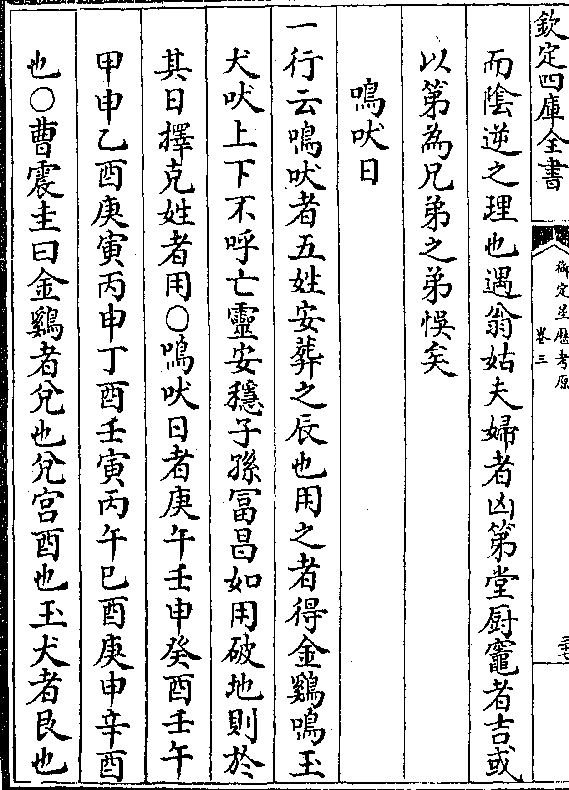 欽定四庫全書
御定星厯考原
卷三
而陰逆之理也遇翁姑夫婦者凶第堂厨竈者吉或
以第為兄弟之弟悞矣
鳴吠日
一行云鳴吠者五姓安葬之辰也用之者得金鷄鳴玉
犬吠上下不呼亡靈安穩子孫冨昌如用破地則於
其日擇克姓者用○鳴吠日者庚午壬申癸酉壬午
甲申乙酉庚寅丙申丁酉壬寅丙午巳酉庚申辛酉
也○曹震圭曰金鷄者兊也兊宫酉也玉犬者艮也